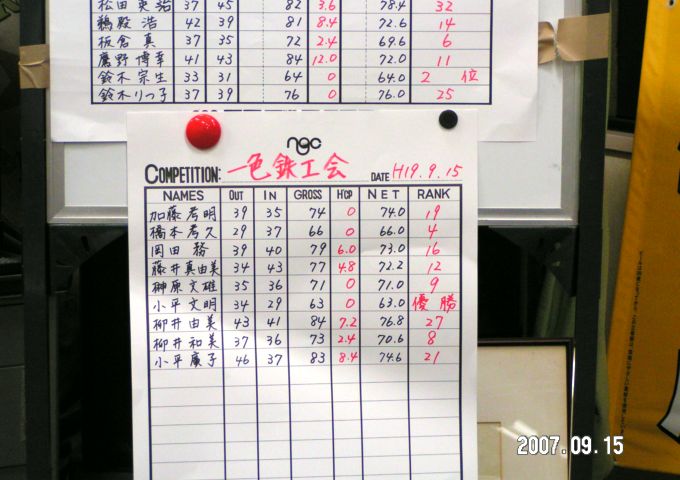 松田 英治 37 45 82 3.6 78.4 32
鵜殿 浩 42 39 81 8.4 72.6 14
板倉 真 37 35 72 2.4 69.6 6
鷹野 博幸 41 43 84 12.0 72.0 11
鈴木 宗生 33 31 64 0 64.0 2位
鈴木りつ子 37 39 76 0 76.0 25
ngc
COMPETITION: 一色鉄工会 DATE H19.9.15
NAMES OUT IN GROSS H'CP NET RANK
加藤孝明 39 35 74 0 74.0 19
橋本孝久 29 37 66 0 66.0 4
岡田 務 39 40 79 6.0 73.0 16
藤井真由美 34 43 77 4.8 72.2 12
榊原文雄 35 36 71 0 71.0 9
小平文明 34 29 63 0 63.0 優勝
柳井由美 43 41 84 7.2 76.8 27
柳井和美 37 36 73 2.4 70.6 8
小平廣子 46 37 83 8.4 74.6 21
2007.09.15